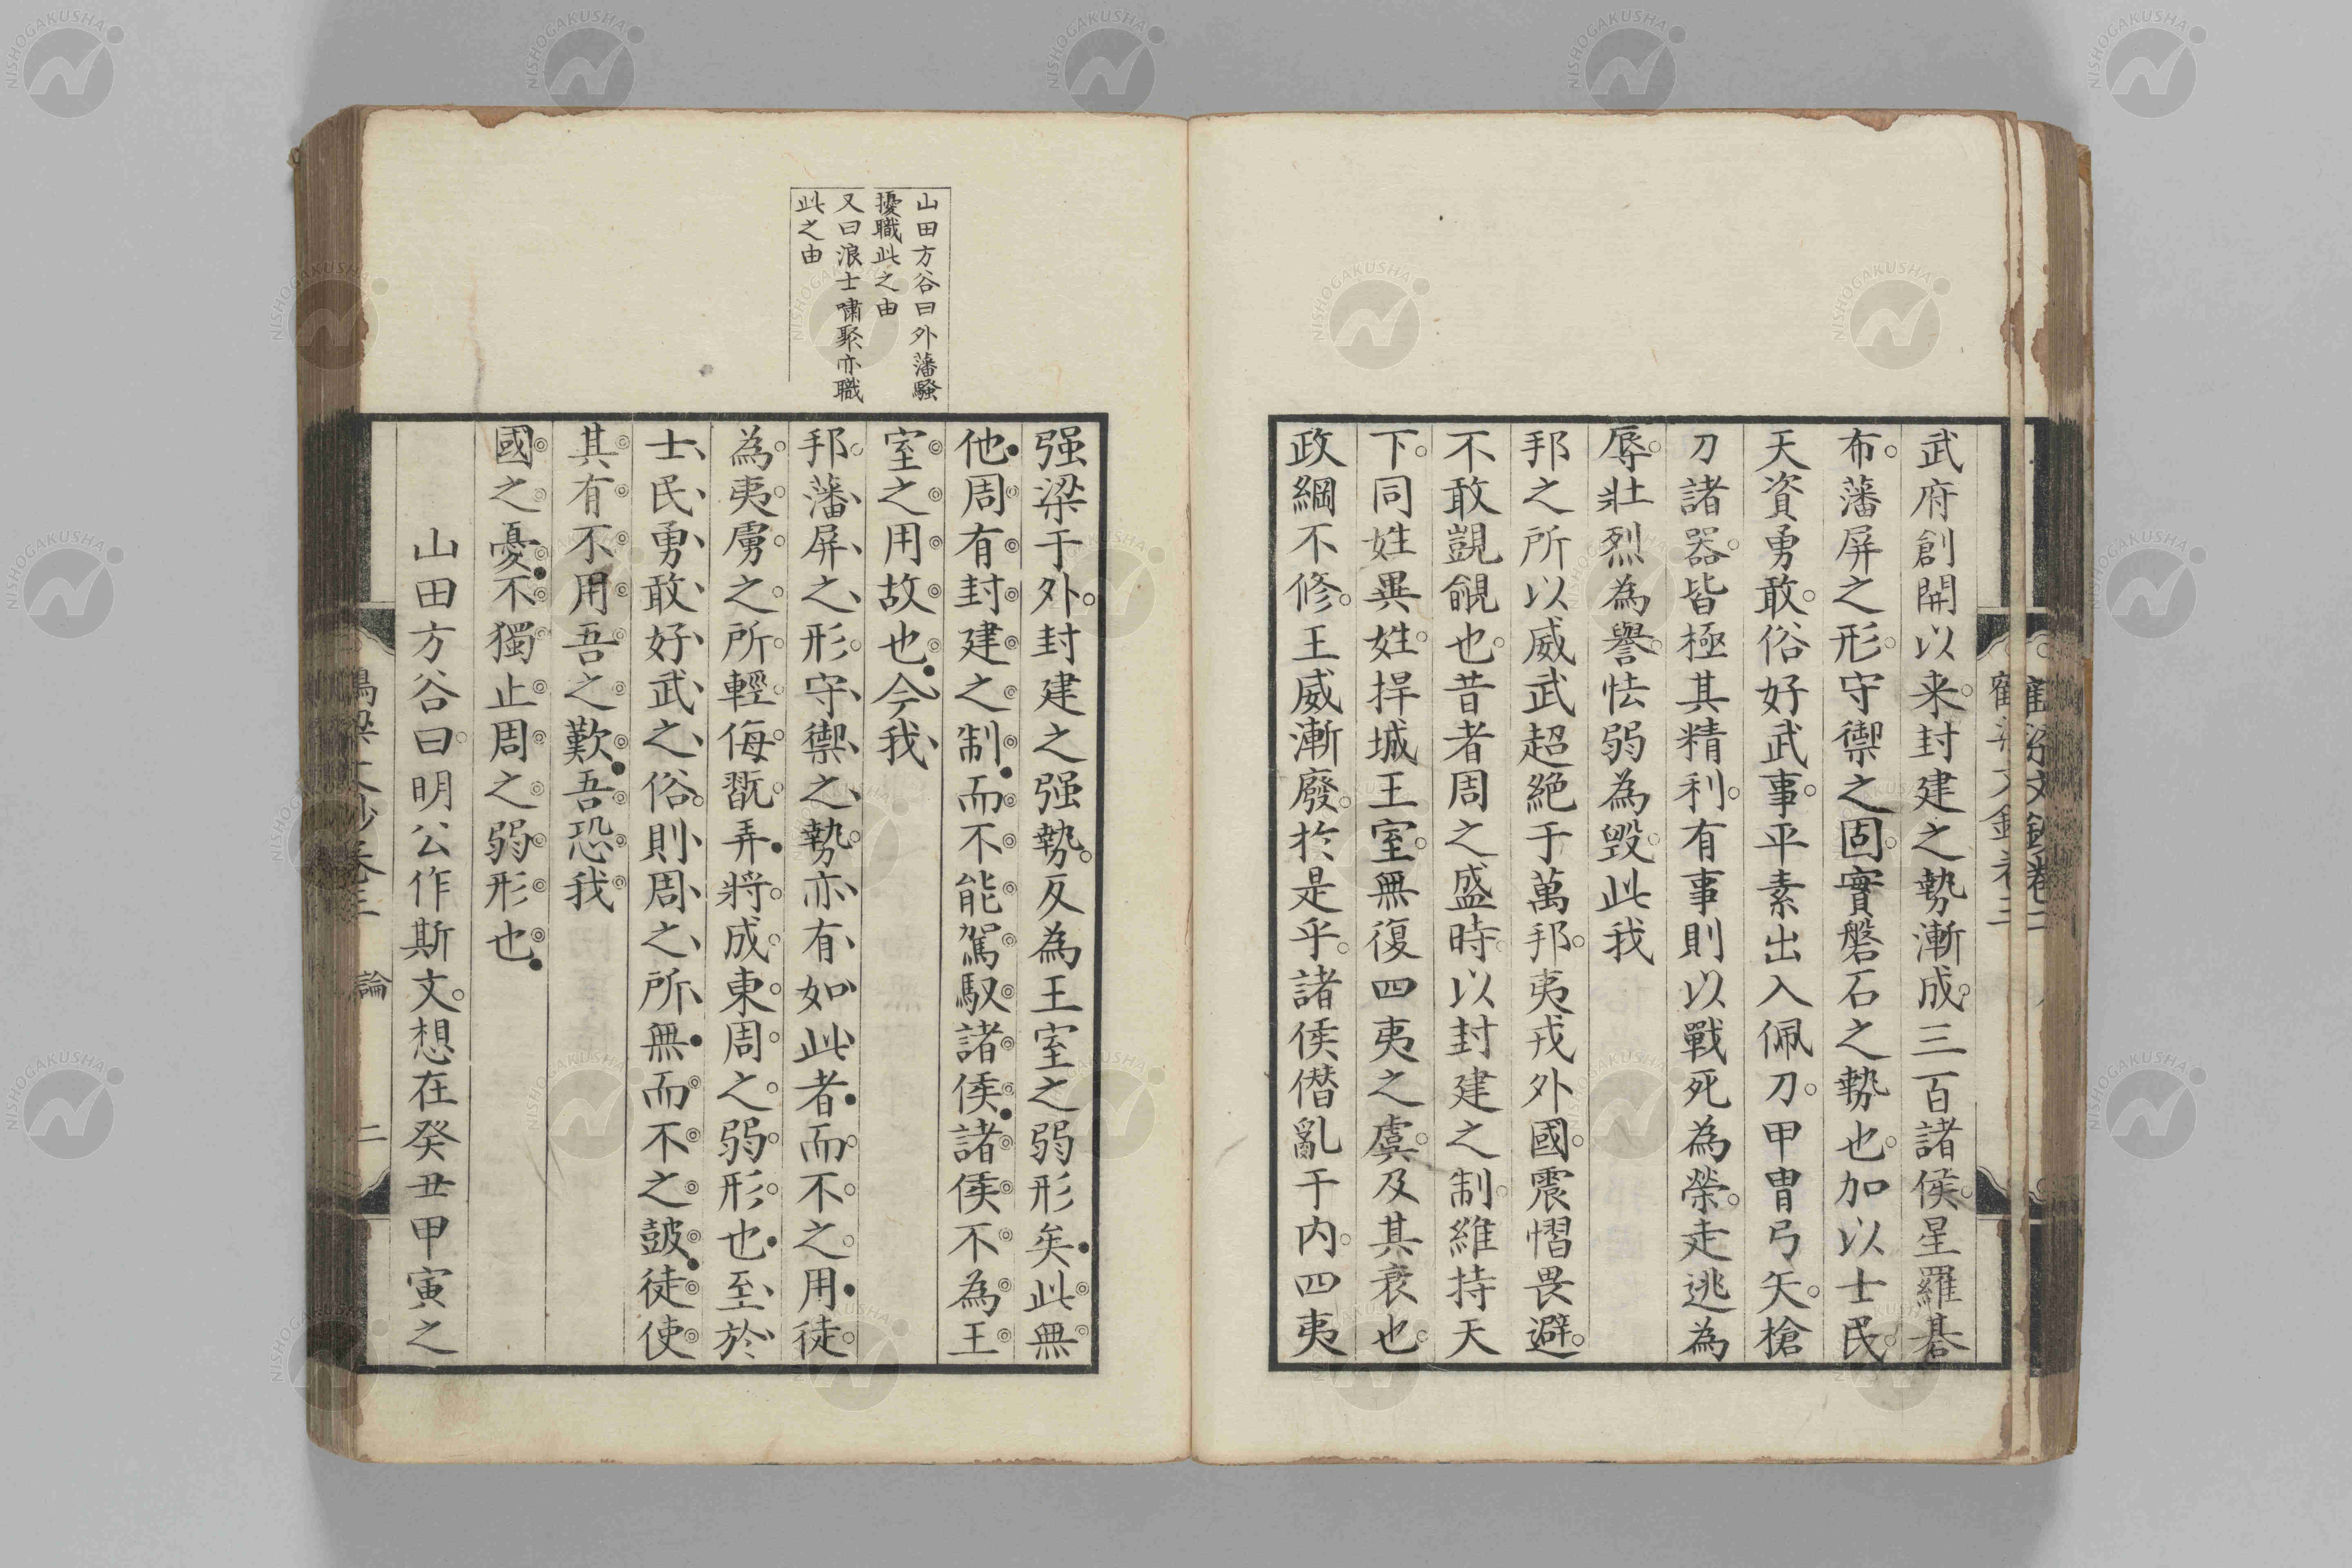 武府創開以来封建之勢漸成三百諸侯星羅棊
布藩屏之形守禦之固實磐石之勢也加以士民
天資勇敢俗好武事平素出入佩刀甲冑弓矢槍
刀諸器皆極其精利有事則以戰死為榮走逃為
辱壯烈為譽怯弱為毀此我
邦之所以威武超絶于萬邦夷戎外國震慴畏避
不敢覬覦也昔者周之盛時以封建之制維持天
下同姓異姓捍城王室無復四夷之虞及其衰也
政綱不修王威漸廢於是乎諸侯僭亂于内四夷
山田方谷曰外藩騷
擾職此之由
又曰浪士嘯聚亦職
此之由
强梁于外封建之强勢反為王室之弱形矣此無
他周有封建之制而不能駕馭諸侯諸侯不為王
室之用故也今我
邦藩屏之形守禦之勢亦有如此者而不之用徒
為夷虜之所輕侮翫弄將成東周之弱形也至於
士民勇敢好武之俗則周之所無而不之鼓徒使
其有不用吾之歎吾恐我
國之憂不獨止周之弱形也
山田方谷曰明公作斯文想在癸丑甲寅之
論
二
NISHOGAKUSHA